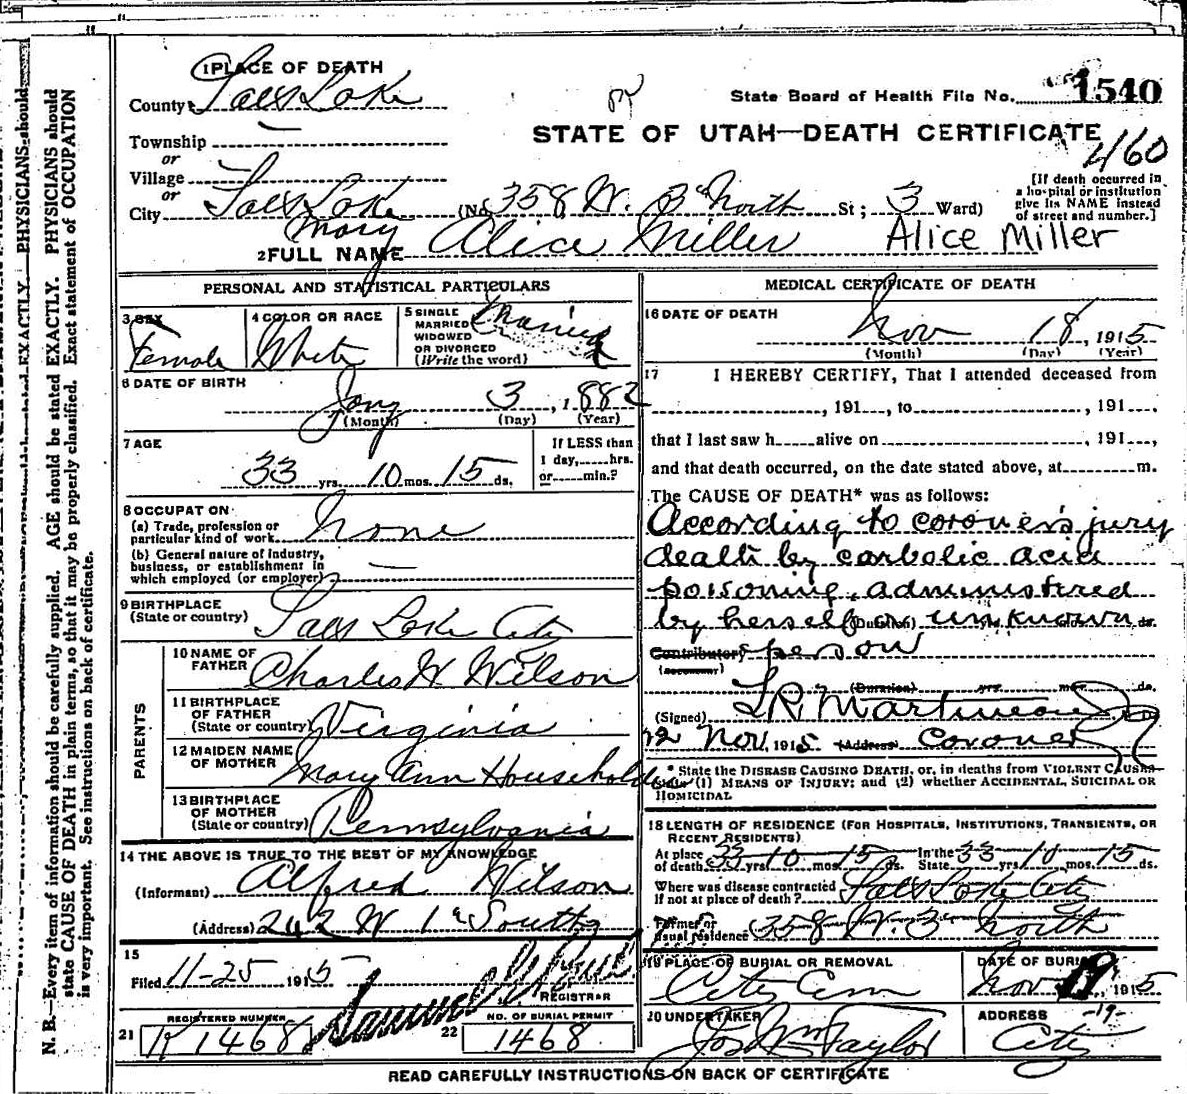 1 PLACE OF DEATH
County Salt Lake
State Board of Health File No. 1540
Township
or
STATE OF UTAH—DEATH CERTIFICATE
460
Village
or
City Salt Lake (No. 358 W. 3d North St; 3 Ward)
[If death occurred in
a hospital or institution
give its NAME instead
of street and number.]
2 FULL NAME Mary Alice Miller Alice Miller
PERSONAL AND STATISTICAL PARTICULARS
3 SEX Female
4 COLOR OR RACE White
5 SINGLE
MARRIED
WIDOWED
OR DIVORCED
(Write the word) Married
6 DATE OF BIRTH
Jany 3, 1882
(Month) (Day) (Year)
7 AGE
33 yrs. 10 mos. 15 ds.
If LESS than
1 day, hrs.
or min.?
8 OCCUPATION
(a) Trade, profession or
particular kind of work None
(b) General nature of industry,
business, or establishment in
which employed (or employer)
9 BIRTHPLACE
(State or country) Salt Lake City
PARENTS
10 NAME OF
FATHER Charles W Wilson
11 BIRTHPLACE
OF FATHER
(State or country) Virginia
12 MAIDEN NAME
OF MOTHER Mary Ann Householder
13 BIRTHPLACE
OF MOTHER
(State or country) Pennsylvania
14 THE ABOVE IS TRUE TO THE BEST OF MY KNOWLEDGE
(Informant) Alfred Wilson
(Address) 242 W 1st South
15
Filed 11-25 1915
REGISTRAR
21 REGISTERED NUMBER
K 1468
22 NO. OF BURIAL PERMIT
1468
MEDICAL CERTIFICATE OF DEATH
16 DATE OF DEATH
Nov 18, 1915
(Month) (Day) (Year)
17 I HEREBY CERTIFY, That I attended deceased from
, 191 , to , 191 .
that I last saw h alive on , 191 ,
and that death occurred, on the date stated above, at m.
The CAUSE OF DEATH* was as follows:
According to coroner's jury
death by carbolic acid
poisoning, administered
by herself or unknown
(Duration) yrs. ds.
Contributory person
(Secondary)
(Duration) yrs. mos. ds.
(Signed) L R Martineau Jr
22 Nov, 1915 (Address) Coroner
* State the DISEASE CAUSING DEATH, or, in deaths from VIOLENT CAUSES
state (1) MEANS OF INJURY; and (2) whether ACCIDENTAL, SUICIDAL OR
HOMICIDAL
18 LENGTH OF RESIDENCE (FOR HOSPITALS, INSTITUTIONS, TRANSIENTS, OR
RECENT RESIDENTS)
At place of death 33 yrs. 10 mos. 15 ds. In the State 33 yrs. 10 mos. 15 ds.
Where was disease contracted
If not at place of death? Salt Lake City
Former or
usual residence 358 W. 3 North
19 PLACE OF BURIAL OR REMOVAL
City Cem
DATE OF BURIAL
Nov 19, 1915
20 UNDERTAKER
Jos Wm Taylor
ADDRESS -19-
City
READ CAREFULLY INSTRUCTIONS ON BACK OF CERTIFICATE
N. B.—Every item of information should be carefully supplied. AGE should be stated EXACTLY. PHYSICIANS should
state CAUSE OF DEATH in plain terms, so that it may be properly classified. Exact statement of OCCUPATION
is very important. See instructions on back of certificate.